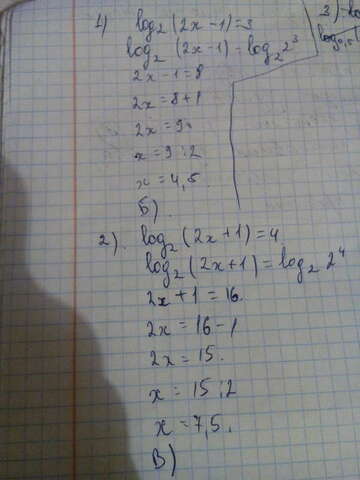 1) log₂(2x-1)=3
log₂ (2x-1) = log₂2³
2x-1=8
2x=8+1
2x=9
x=9:2
x=4,5.
Б).
2). log₂(2x+1)=4
log₂(2x+1)=log₂ 2⁴
2x+1=16.
2x=16-1
2x=15.
x=15:2
x=7,5.
В)
3)